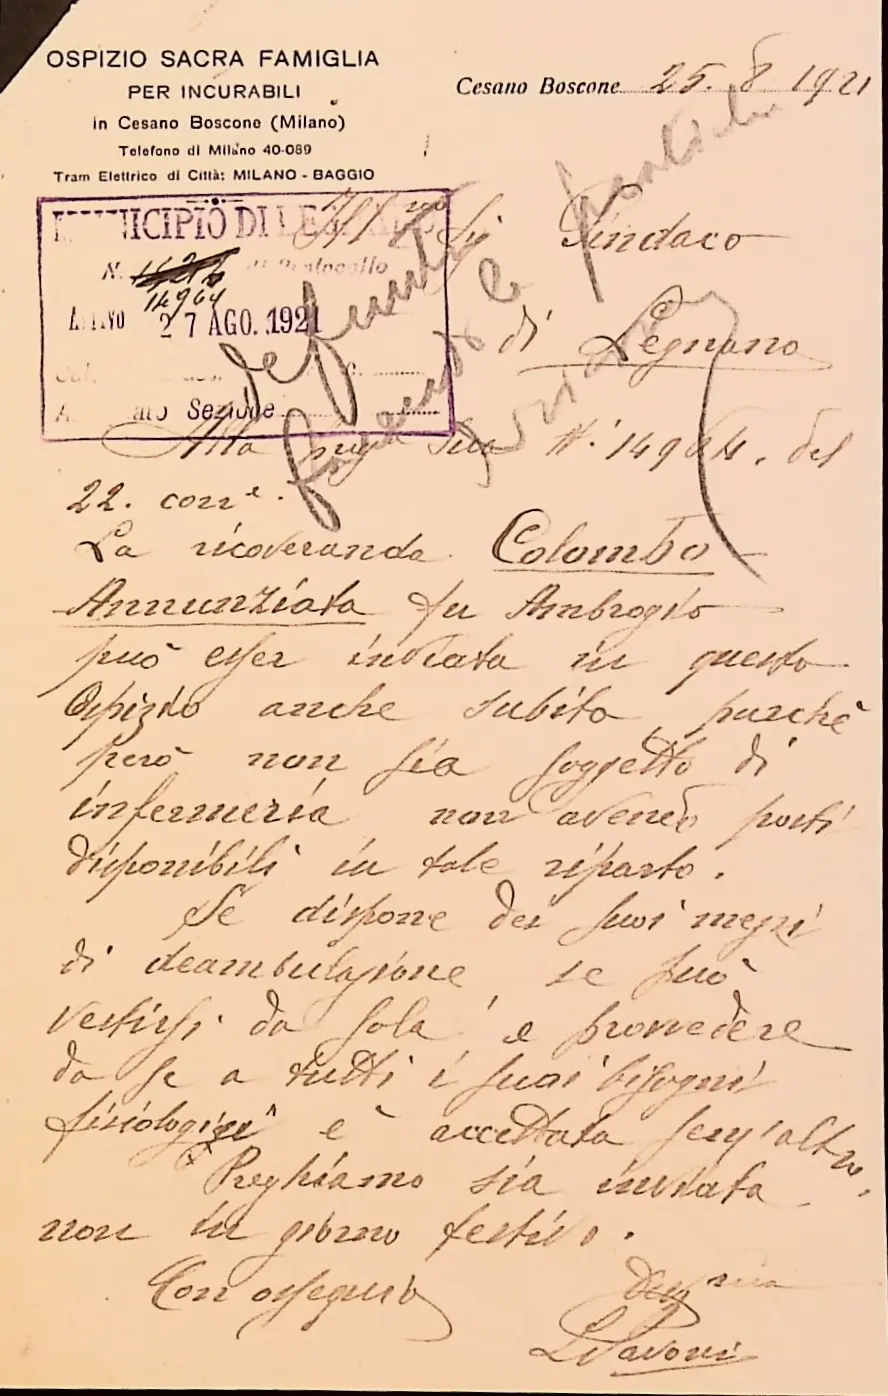 OSPIZIO SACRA FAMIGLIA
PER INCURABILI
in Cesano Boscone (Milano)
Telefono di Milano 40-089
Tram Elettrico di Città: MILANO - BAGGIO
Cesano Boscone 25. 8. 1921
MUNICIPIO DI LEGNANO
N. di Protocollo
14964
27 AGO. 1921
Sezione
Ill.mo Sig. Sindaco
di Legnano
defunta
Alla Sua N. 14964. del
22. corr.e.
La ricoveranda Colombo
Annunziata fu Ambrogio
può esser inviata in questo
Ospizio anche subito, purchè
però non sia soggetto di
infermeria non avendo posti
disponibili in tale riparto.
Se dispone dei suoi mezzi
di deambulazione, se può
vestirsi da sola, e provvedere
da se a tutti i suoi bisogni
fisiologici è accettata senz'altro.
Preghiamo sia inviata
non in giorno festivo.
Con ossequio
Dev.ma